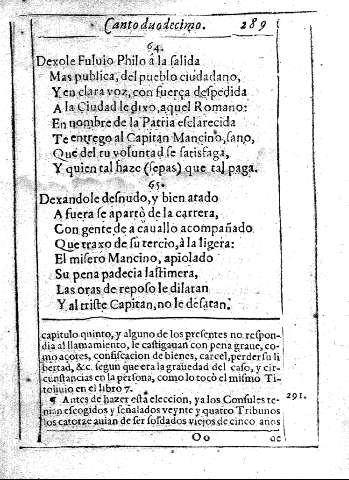 Canto duodecimo. 289
64.
Dexole Fuluio Philo à la salida
Mas publica, del pueblo ciudadano,
Y en clara voz, con fuerça despedida
A la Ciudad le dixo, aquel Romano:
En nombre de la Patria esclarecida
Te entrego al Capitan Mancino, sano,
Que del tu voluntad se satisfaga,
Y quien tal haze (sepas) que tal paga.
65.
Dexandole desnudo, y bien atado
A fuera se apartò de la carrera,
Con gente de a cauallo acompañado
Que traxo de su tercio, à la ligera:
El misero Mancino, apiolado
Su pena padecia lastimera,
Las oras de reposo le dilatan
Y al triste Capitan, no le desatan.
capitulo quinto, y alguno de los presentes no respon-
dia al llamamiento, le castigauan con pena graue, co-
mo açotes, confiscacion de bienes, carcel, perder su li
bertad, &c. segun que era la grauedad del caso, y cir-
cunstancias en la persona, como lo tocò el mismo Ti-
toliuio en el libro 7.
¶ Antes de hazer esta eleccion, ya los Consules te- 291.
nian escogidos y señalados veynte y quatro Tribunos
los catorze auian de ser soldados viejos de cinco anos
Oo de